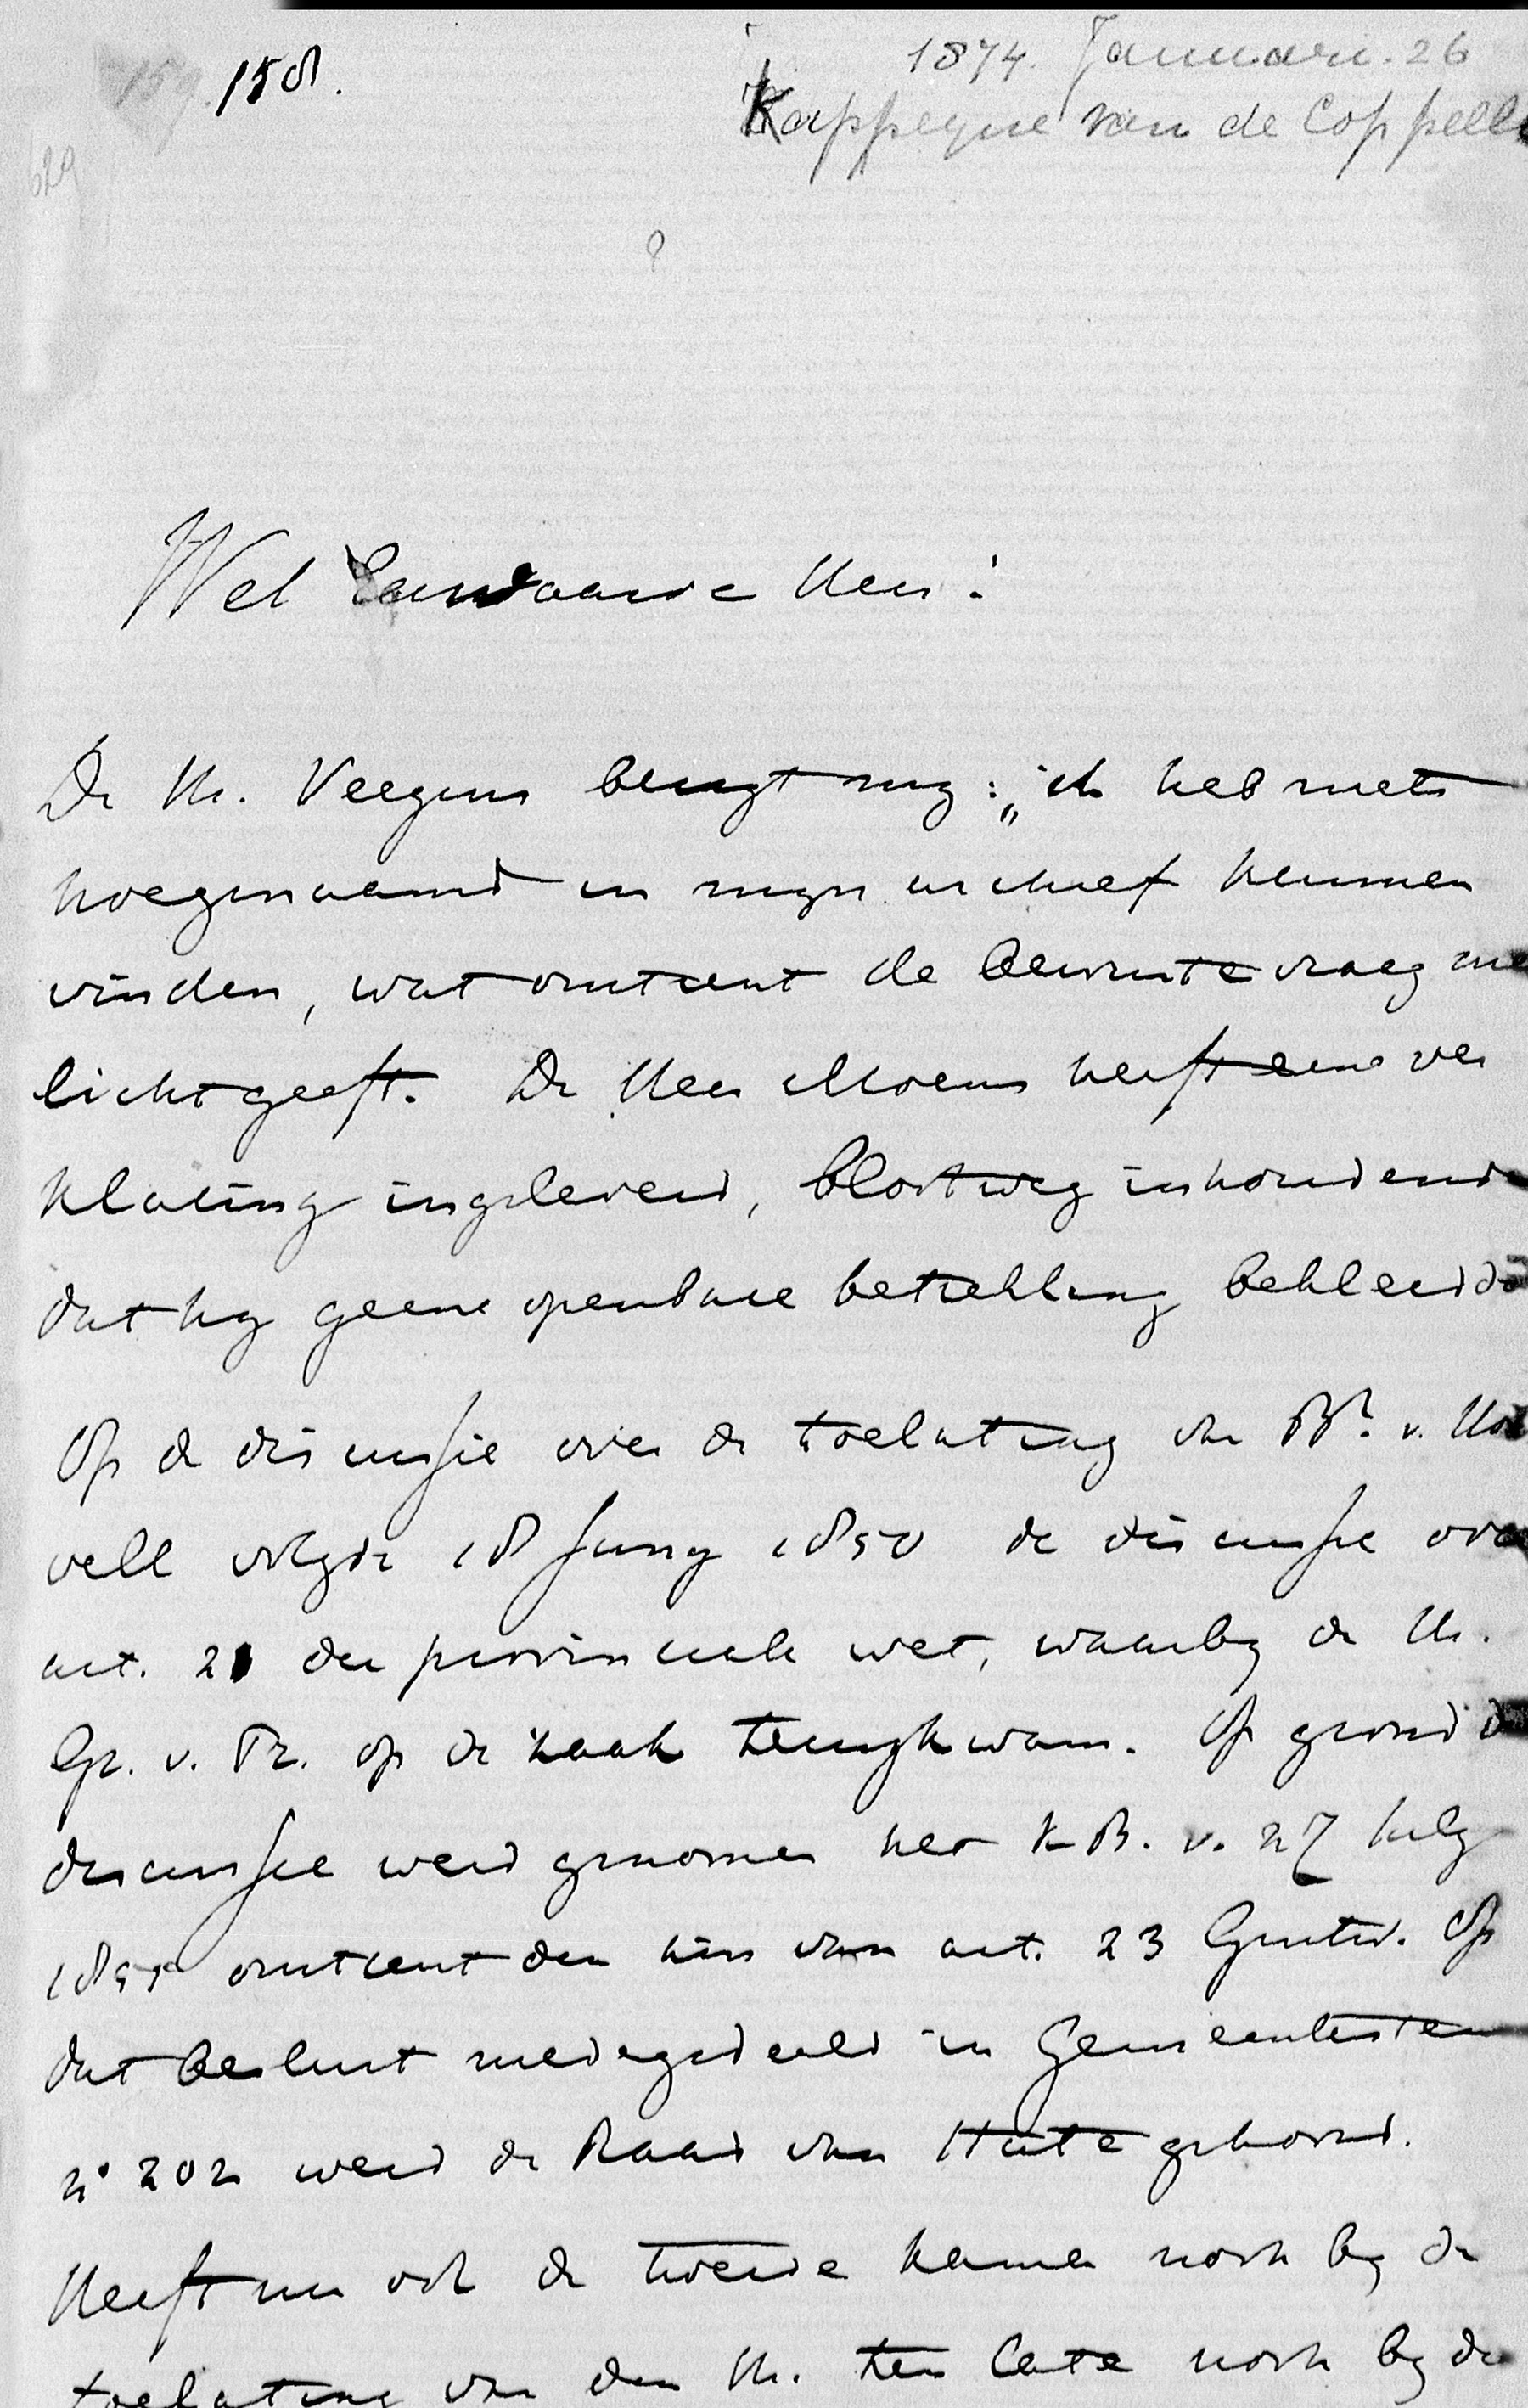 158.
1874. Januari. 26
Kappeyne van de Coppell
629
?
Wel Eerwaarde Heer!
De Hr. Veegens berigt mij: „ik heb niets
hoegenaamd in mijn archief kunnen
vinden, wat omtrent de bewuste vraag
licht geeft. De Heer Moens heeft eene ver
klaring ingeleverd, blootweg inhoudende
dat hij geene openbare betrekking bekleedde
Op de discussie over de toelating van Br. v. Hoë
vell volgde 18 Junij 1850 de discussie over
art. 21 der provinciale wet, waarbij de Hr.
Gr. v. Pr. op de zaak terugkwam. Op grond d
discussie werd genomen het K.B. v. 27 Julij
1855 omtrent den zin van art. 23 Gemtw. Op
dat besluit medegedeeld in Gemeentestem
no 202 werd de Raad van State gehoord.
Heeft nu ook de tweede kamer noch bij de
toelating van den Hr. ten Cate noch bij de